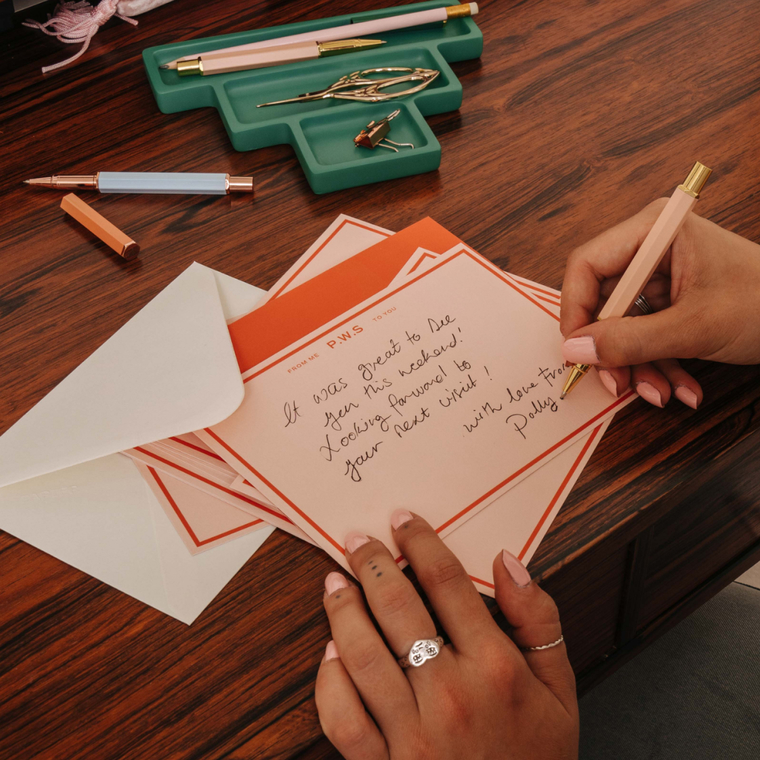 FROM ME P.W.S TO YOU
It was great to see
you this weekend!
Looking forward to
your next visit!
with love from
Polly